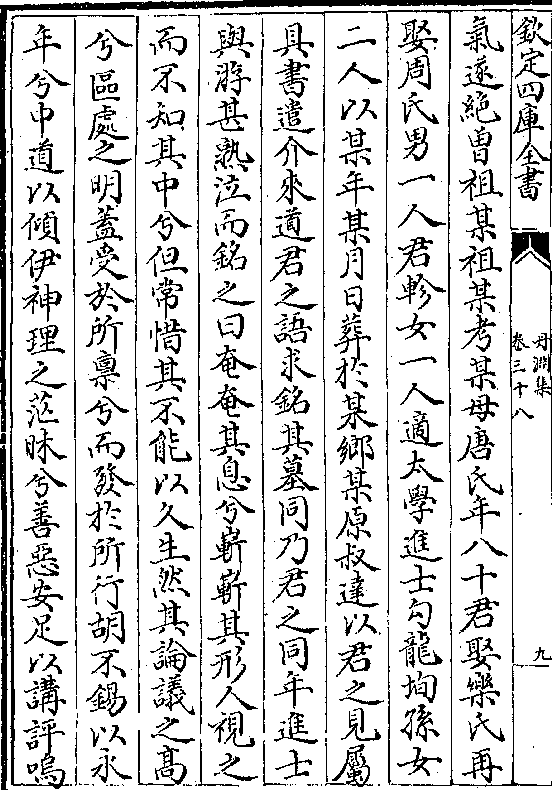 欽定四庫全書
丹淵集
卷三十八
九
氣遂絶曽祖某祖某考某母唐氏年八十君娶樂氏再
娶周氏男一人君軫女一人適太學進士勾龍均孫女
二人以某年某月日葬於某鄉某原叔達以君之見屬
具書遣介來道君之語求銘其墓同乃君之同年進士
與游甚熟泣而銘之曰奄奄其息兮嶄嶄其形人視之
而不知其中兮但常惜其不能以久生然其論議之髙
兮區處之明蓋受於所禀兮而發於所行胡不錫以永
年兮中道以傾伊神理之茫昧兮善惡安足以講評嗚